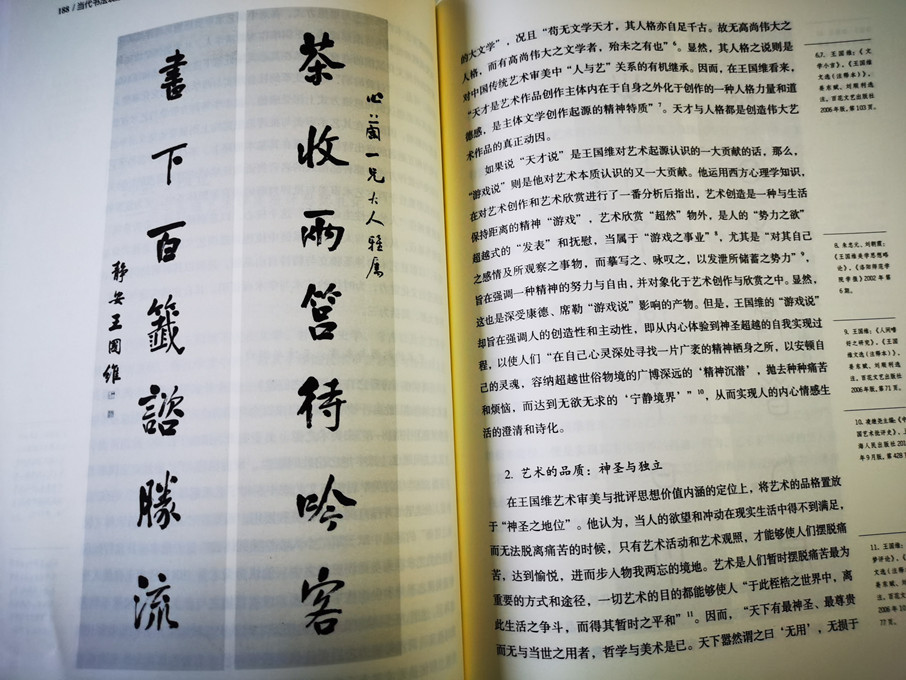 188 / 当代书法
茶收兩筥待吟客
心蘭一兄大人雅属
書下百籤諮勝流
静安王國維
的大文学”，况且“苟无文学天才，其人格亦自足千古。故无高尚伟大之
人格，而有高尚伟大之文学者，殆未之有也”6。显然，其人格之说则是
对中国传统艺术审美中“人与艺”关系的有机继承。因而，在王国维看来，
“天才是艺术作品创作主体内在于自身之外化于创作的一种人格力量和道
德感，是主体文学创作起源的精神特质”7。天才与人格都是创造伟大艺
术作品的真正动因。
如果说“天才说”是王国维对艺术起源认识的一大贡献的话，那么，
“游戏说”则是他对艺术本质认识的又一大贡献。他运用西方心理学知识，
在对艺术创作和艺术欣赏进行了一番分析后指出，艺术创造是一种与生活
保持距离的精神“游戏”，艺术欣赏“超然”物外，是人的“势力之欲”
超越式的“发表”和抚慰，当属于“游戏之事业”8，尤其是“对其自己
之感情及所观察之事物，而摹写之、咏叹之，以发泄所储蓄之势力”9，
旨在强调一种精神的努力与自由，并对象化于艺术创作与欣赏之中。显然，
这也是深受康德、席勒“游戏说”影响的产物。但是，王国维的“游戏说”
却旨在强调人的创造性和主动性，即从内心体验到神圣超越的自我实现过
程，以使人们“在自己心灵深处寻找一片广袤的精神栖身之所，以安顿自
己的灵魂，容纳超越世俗物境的广博深远的‘精神沉潜’，抛去种种痛苦
和烦恼，而达到无欲无求的‘宁静境界’”10，从而实现人的内心情感生
活的澄清和诗化。
2. 艺术的品质：神圣与独立
在王国维艺术审美与批评思想价值内涵的定位上，将艺术的品格置放
于“神圣之地位”。他认为，当人的欲望和冲动在现实生活中得不到满足，
而无法脱离痛苦的时候，只有艺术活动和艺术观照，才能够使人们摆脱痛
苦，达到愉悦，进而步入物我两忘的境地。艺术是人们暂时摆脱痛苦最为
重要的方式和途径，一切艺术的目的都能够使人“于此桎梏之世界中，离
此生活之争斗，而得其暂时之平和”11。因而，“天下有最神圣、最尊贵
而无与当世之用者，哲学与美术是已。天下嚣然谓之曰‘无用’，无损于
6.7. 王国维：《文
学小言》，《王国维
文选（注释本）》，
姜东赋、刘顺利选
注，百花文艺出版社
2006年版，第103页。
8. 朱忠元、刘朝霞：
《王国维美学思想略
论》，《洛阳师范学
院学报》2002年第
6期。
9. 王国维：《人间嗜
好之研究》，《王国
维文选（注释本）》，
姜东赋、刘顺利选
注，百花文艺出版社
2006年版，第71页。
10. 凌继尧主编：《中
国艺术批评史》，上
海人民出版社201
年9月版，第428
11. 王国维：
梦评论》，
文选（注释
姜东赋、刘
注，百花文
2006年10
77页。